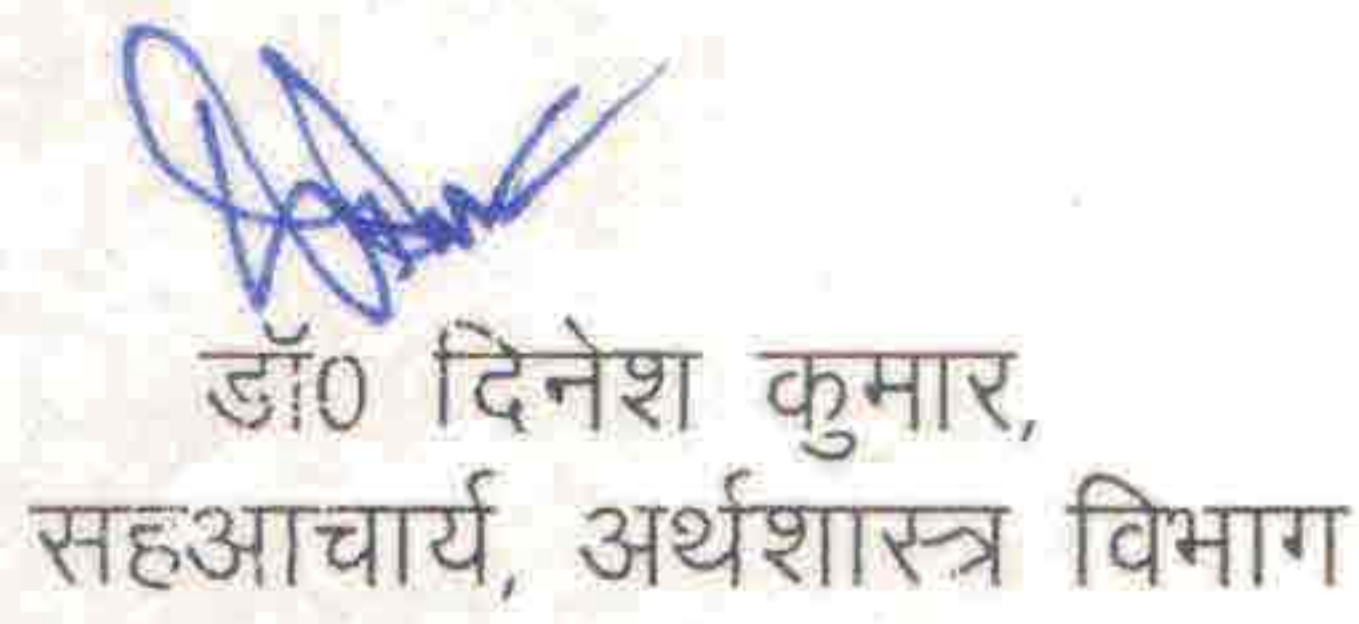 डॉ0 दिनेश कुमार,
सहआचार्य, अर्थशास्त्र विभाग